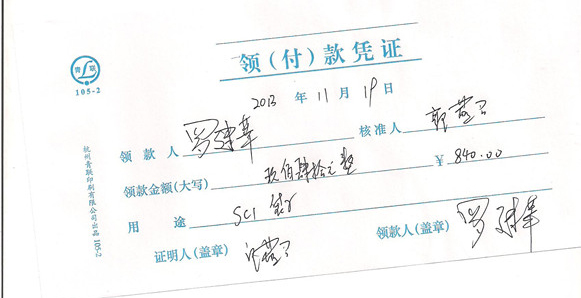 青 联
105-2
领(付)款凭证
2013 年 11 月 19 日
领 款 人 罗建华 核准人
领款金额(大写) 佰肆拾元整 ¥ 840.00
用 途 SCI
证明人(盖章) 领款人(盖章) 罗建华
杭州青联印刷有限公司出品 105-2